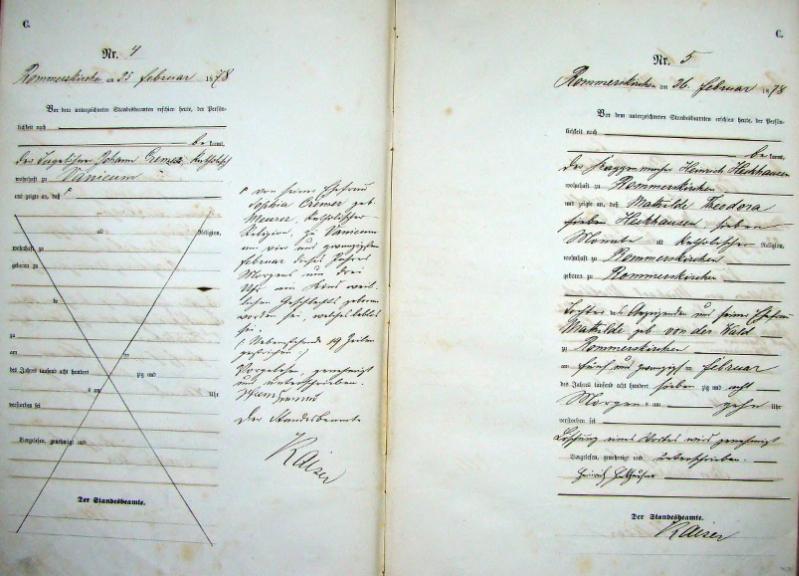 C.
Nr. 4
Rommerskirchen am 25 Februar 1878
Vor dem unterzeichneten Standesbeamten erschien heute, der Persön-
lichkeit nach
be kannt,
der Tagelöhner Johann Cremer, Katholisch
wohnhaft zu Vanicum
und zeigte an, daß
alt Religion,
wohnhaft zu
geboren zu
zu
zu
am ten
des Jahres tausend acht hundert zig und
um Uhr
verstorben sei
Vorgelesen, genehmigt und
Der Standesbeamte.
von seiner Ehefrau
Sophia Cremer geb.
Meurer, Katholischer
Religion, zu Vanicum
am vier und zwanzigsten
Februar dieses Jahres
Morgens um drei
Uhr ein Kind weib-
lichen Geschlechts geboren
worden sei, welches leblos
sei.
Vorstehende 19 Zeilen
gestrichen
Vorgelesen, genehmigt
und unterschrieben.
Der Standesbeamte
Kaiser
C.
Nr. 5
Rommerskirchen am 26 Februar 1878
Vor dem unterzeichneten Standesbeamten erschien heute, der Persön-
lichkeit nach
be kannt,
der Heinrich Heckhausen
wohnhaft zu Rommerskirchen
und zeigte an, daß Mathilde Theodora
Heckhausen, sieben
Monate alt Katholischer Religion,
wohnhaft zu Rommerskirchen
geboren zu Rommerskirchen
Tochter des Anzeigenden und seiner Ehefrau
Mathilde geb. von der Wald
zu Rommerskirchen
am fünf und zwanzig ten Februar
des Jahres tausend acht hundert sieben zig und acht
Morgens um zehn Uhr
verstorben sei
Löschung eines Wortes wird genehmigt
Vorgelesen, genehmigt und unterschrieben.
Heinrich
Der Standesbeamte.
Kaiser